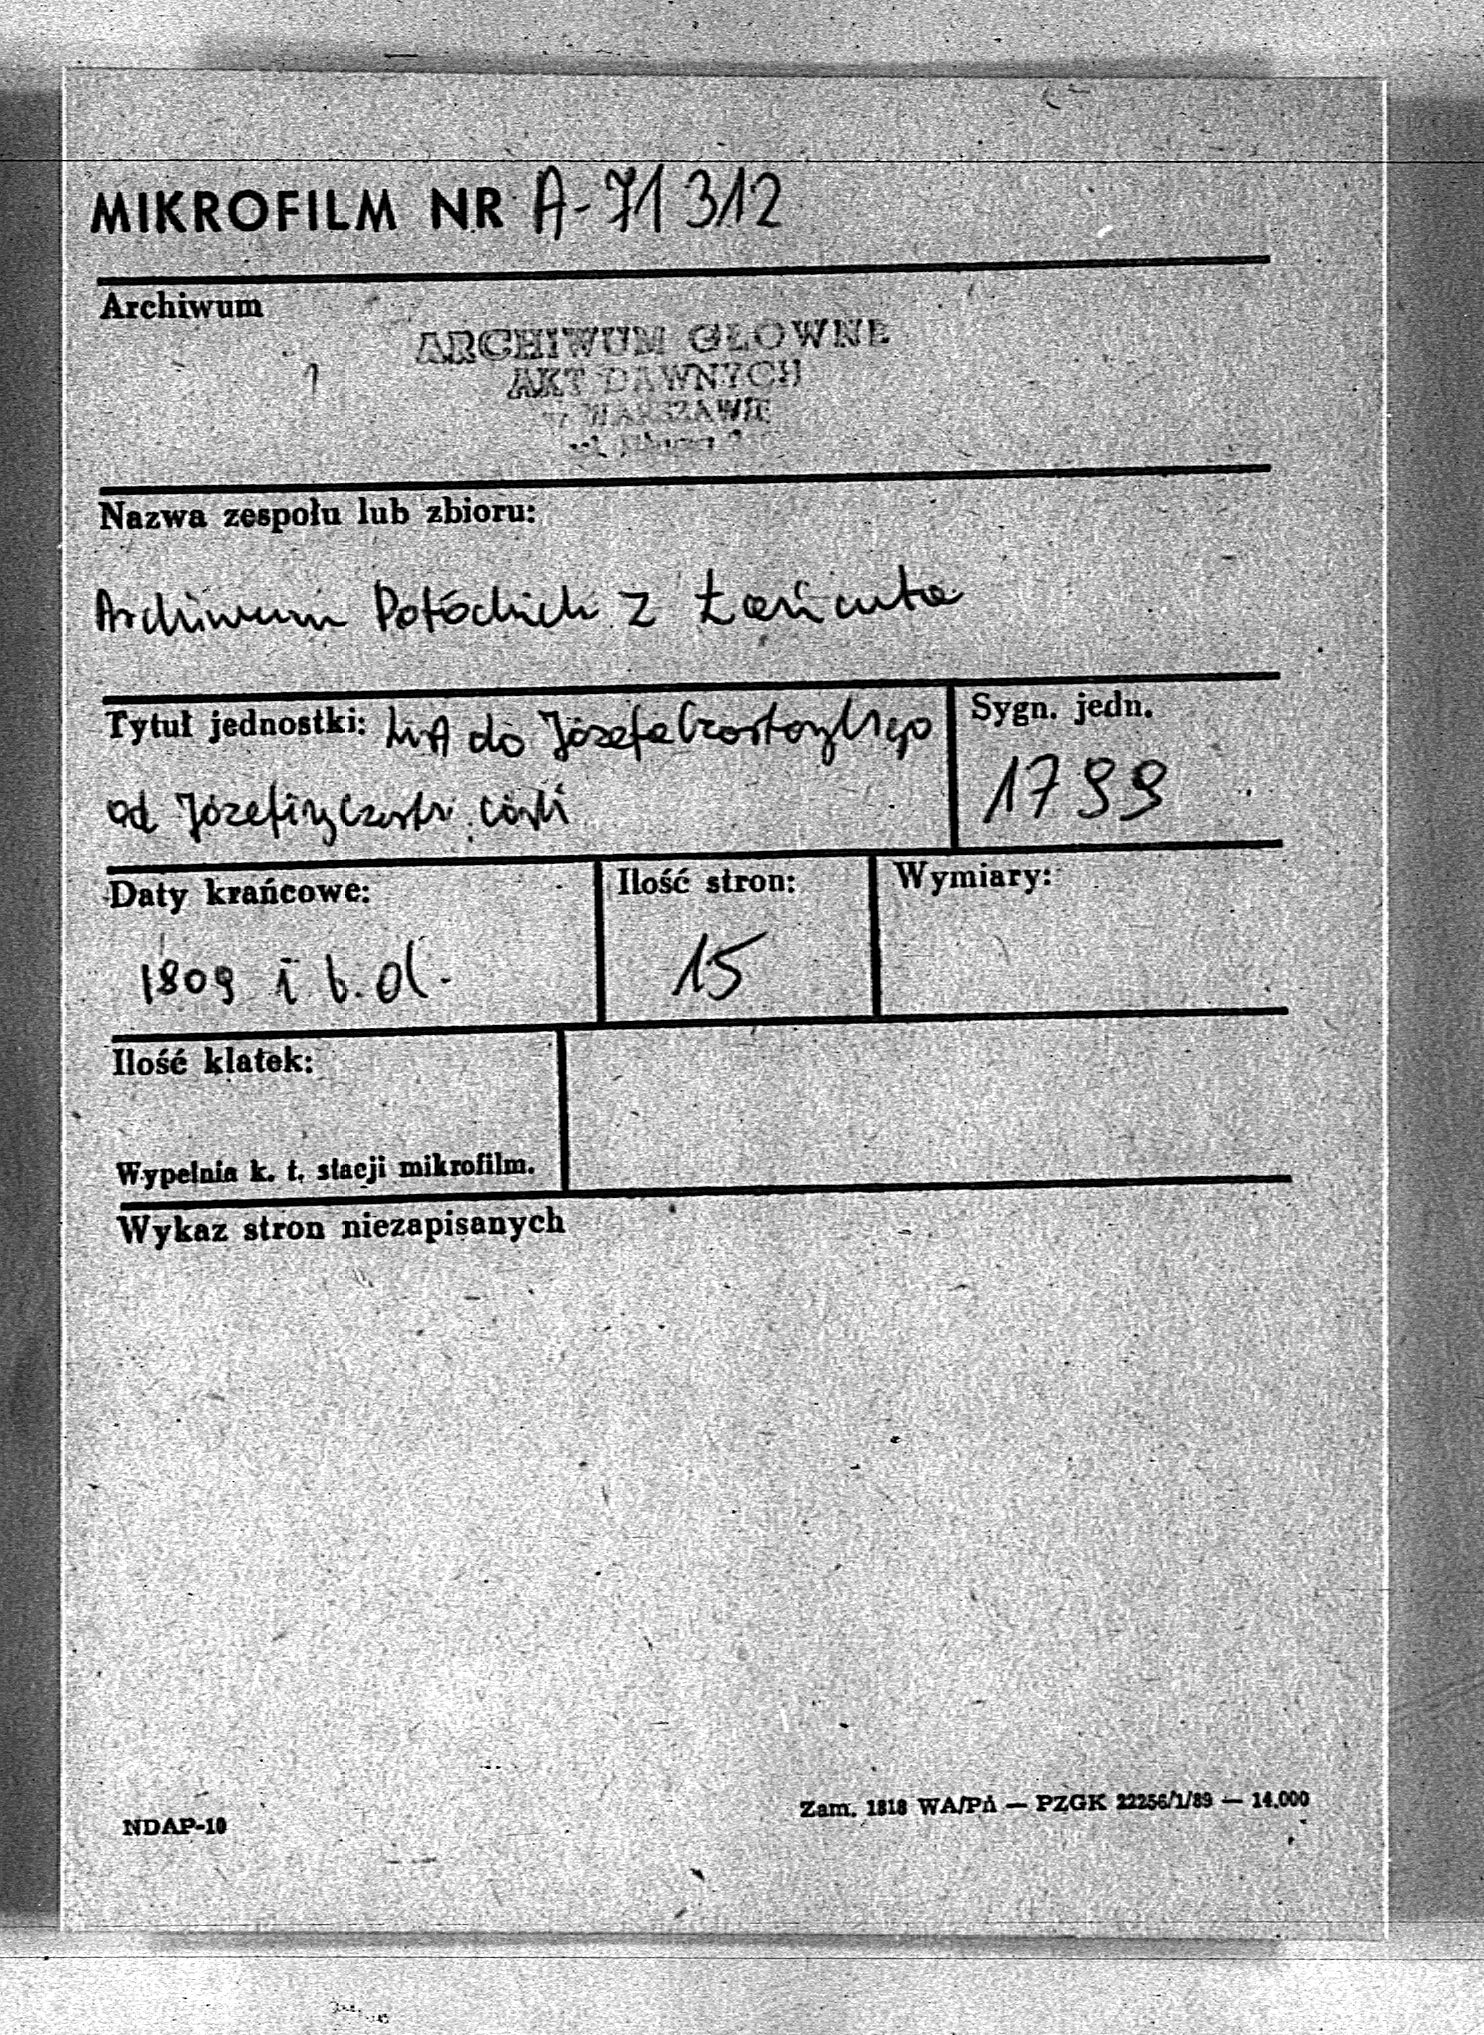 MIKROFILM NR A-71312
Archiwum
ARCHIWUM GŁOWNE
AKT DAWNYCH
w WARSZAWIE
Nazwa zespołu lub zbioru:
Archiwum Potockich z Łańcuta
Tytuł jednostki: List do Józefa Czartoryskiego
od Józefiny Czart. córki
Sygn. jedn.
1799
Daty krańcowe:
1809 i b.d.
Ilość stron:
15
Wymiary:
Ilość klatek:
Wypełnia k. t. stacji mikrofilm.
Wykaz stron niezapisanych
NDAP-10
Zam. 1818 WA/PA — PZGK 22256/1/89 — 14.000